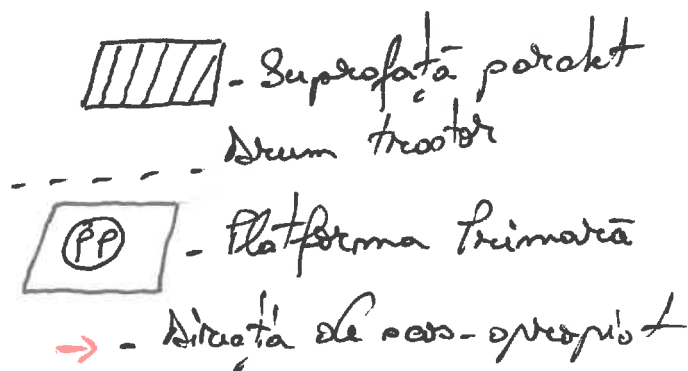 - Suprafață parchet
Drum tractor
PP - Platforma Primară
- Direcția de scos-apropiat